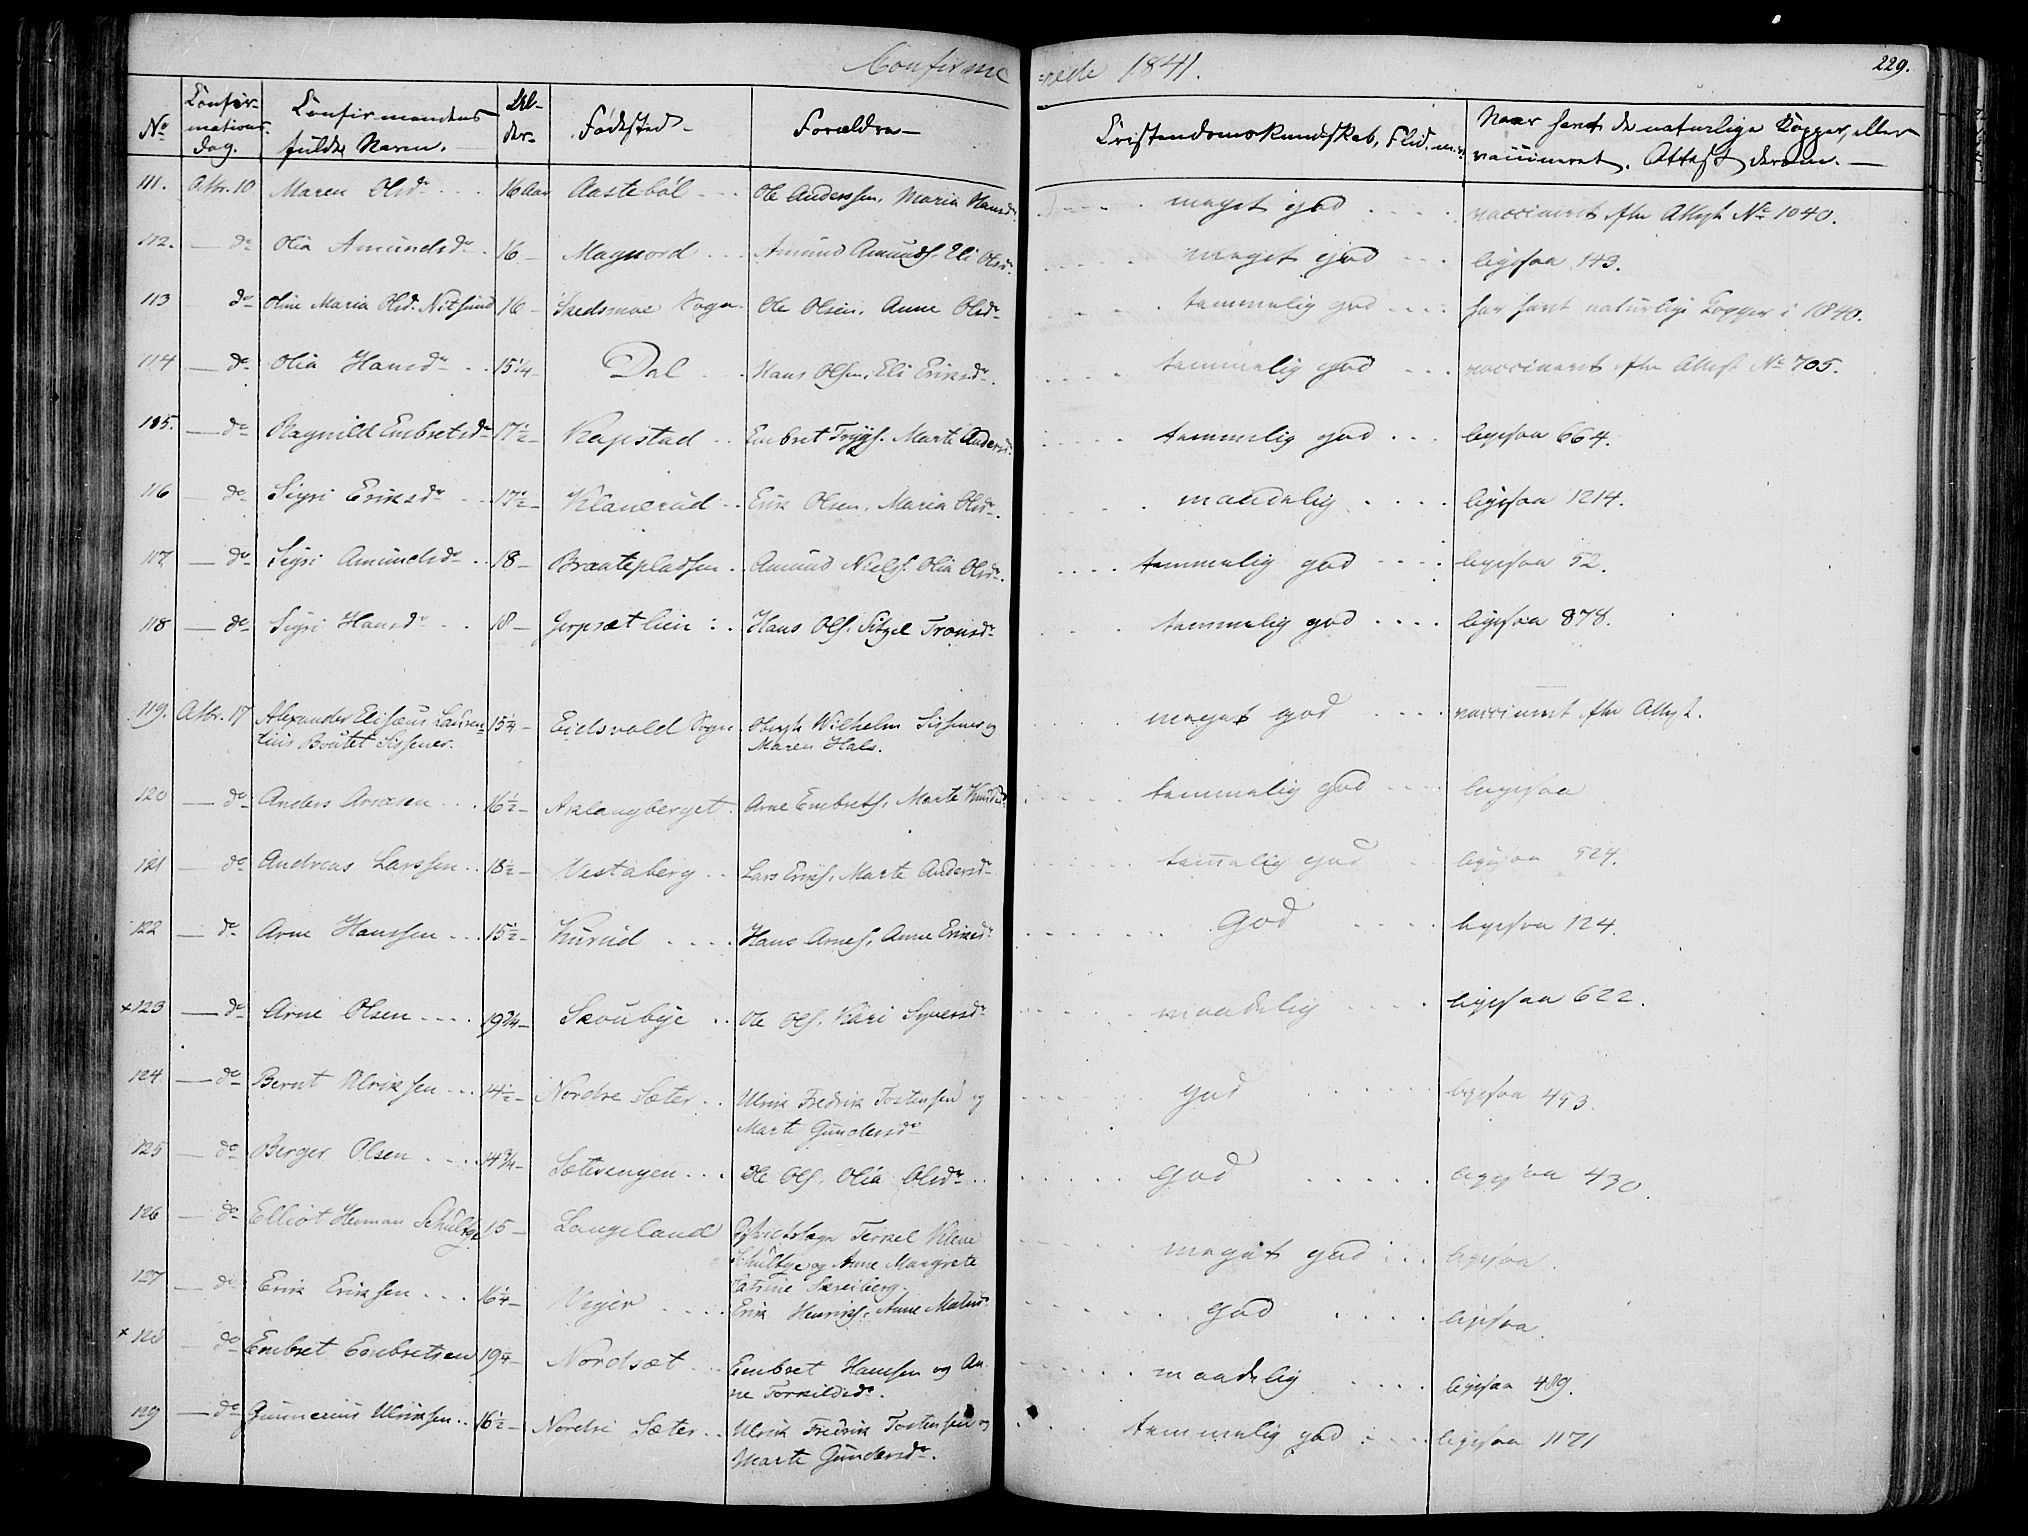 Confirme
=rede 1841.
229.
No
Confir-
mations-
dag.
Confirmandens
fulde Navn.
Al-
der
Fødested
Forældre
Cristendomskundskab, Flid m.v.
Naar havt de naturlige Kopper, eller
vaccineret. Attest derom.
111. Octbr. 10 Maren Olsdr 16 Aar Aastebøl Ole Anderssen, Maria Hansdr meget god vaccineret efter Attest No 1040.
112. do Olia Amundsdr 16 Magnord Amund Amunds. Eli Olsdr meget god ligesaa 143.
113 do Oline Maria Olsd. Nitsund 16 Skedsmoe Sogn Ole Olsen, Anne Olsdr temmelig god har havt naturlige Kopper i 1840.
114 do Olia Hansdr 15 1/4 Dal Hans Olsen, Eli Eriksdr temmelig god vaccineret efter Attest No 705.
115. do Ragnild Embretsdr 17 1/2 Kapstad Embret Trygs. Marte Andersdr temmelig god ligesaa 664.
116 do Sigri Eriksdr 17 1/2 Klanerud Erik Olsen, Maria Olsdr maadelig ligesaa 1214.
117 do Sigri Amundsdr 18 Braatepladsen Amund Niels. Olia Olsdr temmelig god ligesaa 52.
118 do Sigri Hansdr 18 Jerpsætlien Hans Ols. Sitzel Tronsdr temmelig god ligesaa 878.
119. Octbr. 17 Alexander Elisæus Lauren- 15 1/4 Eidsvold Sogn Wilhelm Sissener og meget god vaccineret efter Attest.
tius Boutet Sissener. Maren Hals.
120 do Anders Arnesen 16 1/2 Aklangberget Arne Embrets. Marte Knudsdr temmelig god ligesaa
121 do Andreas Larssen 18 1/2 Vestaberg Lars Eriks. Marte Andersdr temmelig god ligesaa 524.
122 do Arne Hanssen 15 1/2 Kurud Hans Arnes. Anne Eriksdr God ligesaa 124.
+ 123 do Arne Olsen 19 3/4 Skoubye Ole Ols. Kari Syversdr maadelig ligesaa 622.
124 do Bernt Ulriksen 14 1/2 Nordre Sæter Ulrik Fredrik Tostensen og god ligesaa 493.
Marte Gundersdr
125 do Berger Olsen 14 3/4 Sæterengen Ole Ols. Olia Olsdr god ligesaa 430.
126 do Elliot Herman Schultze 15 Langeland Districtslæge Terkel Klene
Schultze og Anne Margrete meget god ligesaa.
Catrine Skreiberg.
127 do Erik Eriksen 16 1/4 Vejer Erik Henriks. Anne god ligesaa.
+ 128 do Embret Embretsen 19 1/4 Nordsæt Embret Hansen og An- maadelig ligesaa 489.
ne Torkildsdr.
129 do Gunnerius Ulriksen 16 1/2 Nordre Sæter Ulrik Fredrik Tostensen og temmelig god ligesaa 1171
Marte Gundersdr.